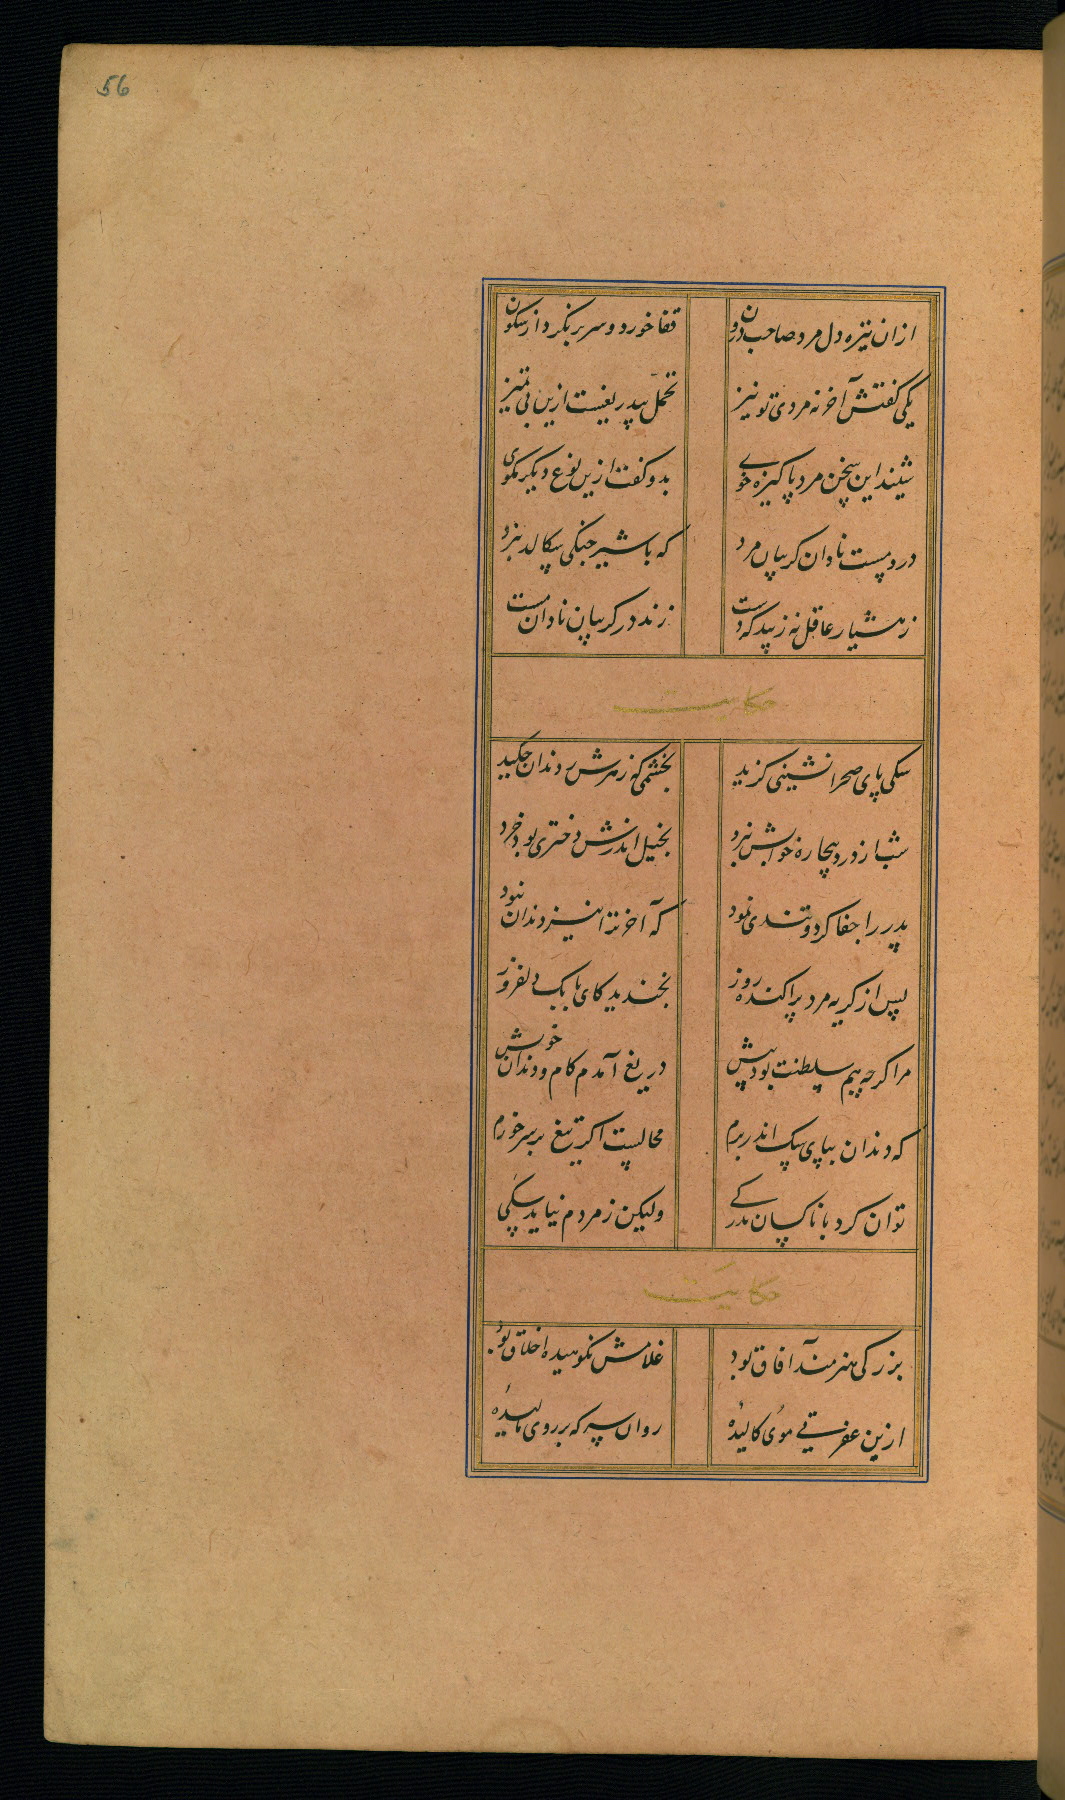 56
ازان تیره دل مرد صاحب درون قفا خورد و سر بر نکرد از سکون
یکی گفتش آخر نه مردی تو نیز تحمل بدریغست ازین بی تمیز
شنید این سخن مرد پاکیزه خوی بدو گفت ازین نوع دیگر مگوی
درد مست نادان گریبان مرد که با شیر جنگی سگالد نبرد
ز هشیار عاقل نه زیبد که دست زند در گریبان نادان مست
حکایت
سگی پای صحرا نشینی گزید بخشمی که زهرش ز دندان چکید
شب از درد بیچاره خوابش نبرد بخیل اندرش دختری بود خرد
پدر را جفا کرد و تندی نمود که آخر ترا نیز دندان نبود
پس از گریه مرد پراکنده روز بخندید کای بابک دلفروز
مرا گرچه هم سلطنت بود بیش دریغ آمدم کام و دندان خویش
محالست اگر تیغ بر سر خورم که دندان بپای سگ اندر برم
توان کرد با ناکسان بدرگی ولیکن ز مردم نیاید سگی
حکایت
بزرگی هنرمند آفاق بود غلامش نکوهیده اخلاق بود
ازین عفرتی موی کالیده روان سرکه بر روی مالیده